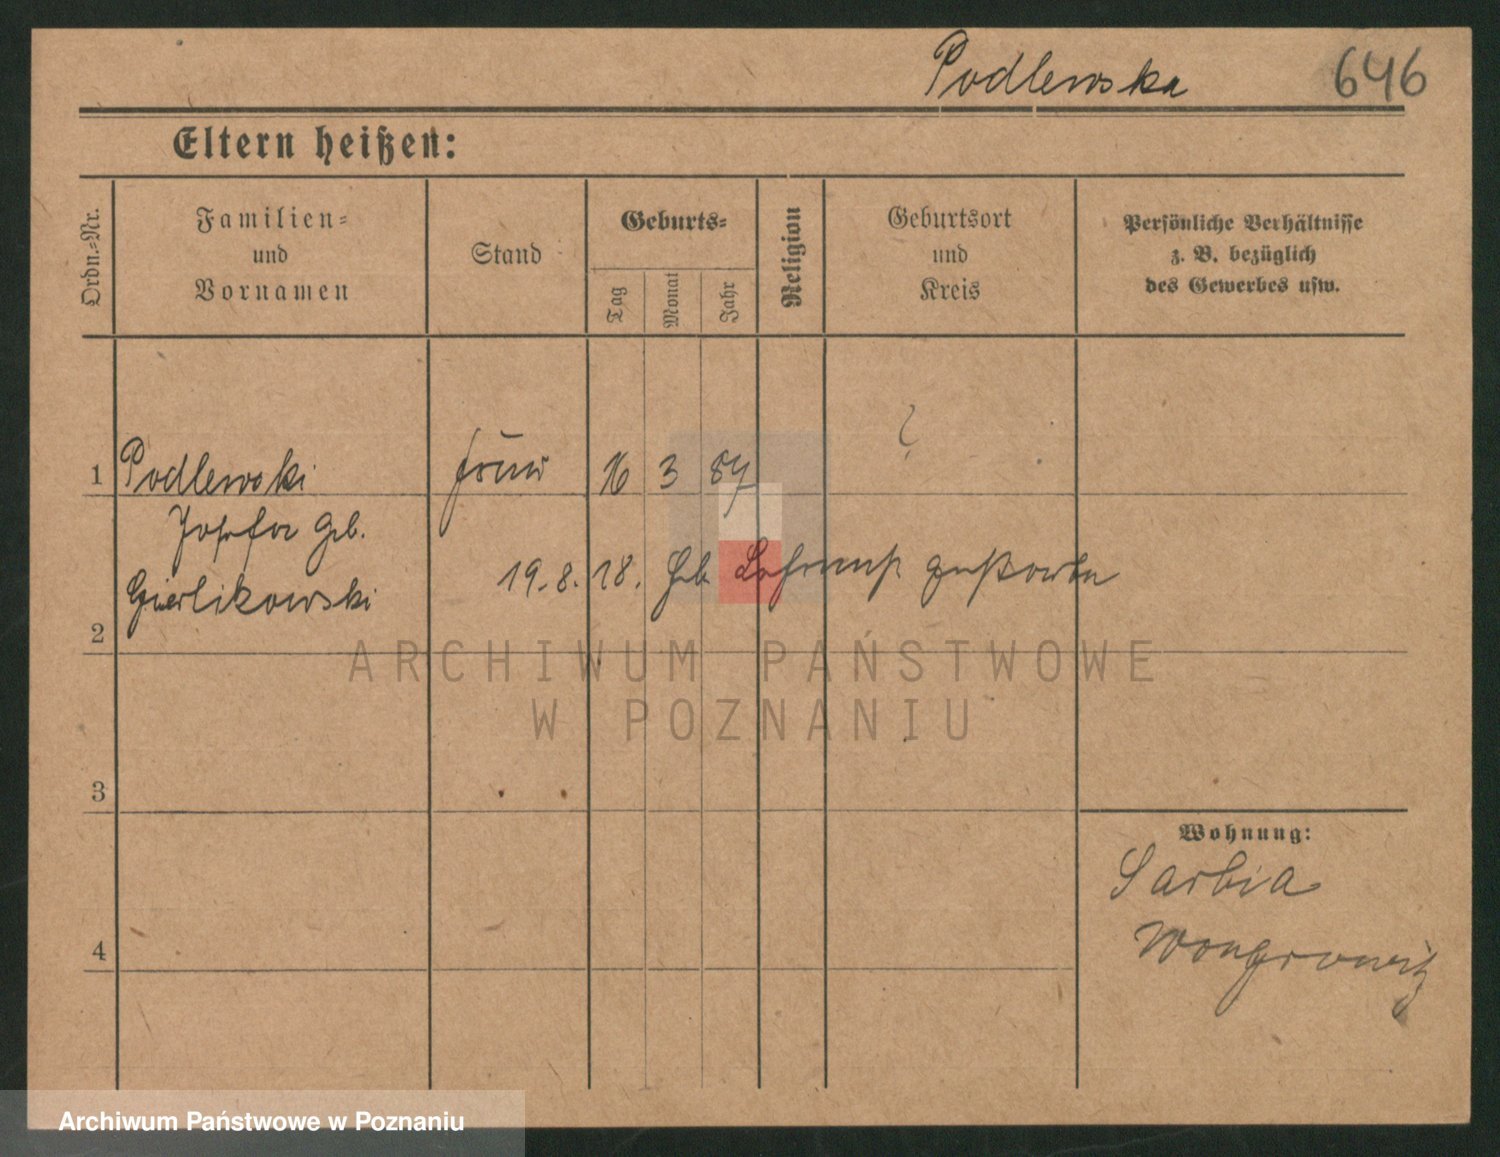 Podlewska 646
Eltern heißen:
Ordn.-Nr.
Familien-
und
Vornamen
Stand
Geburts-
Tag
Monat
Jahr
Religion
Geburtsort
und
Kreis
Persönliche Verhältnisse
z. B. bezüglich
des Gewerbes usw.
?
1 Podlewski 16 3 87
Josefa geb.
Gierlikowski
19.8.18. Geb.
2
ARCHIWUM PAŃSTWOWE
W POZNANIU
3
Wohnung:
Sarbia
Wongrowitz
4
Archiwum Państwowe w Poznaniu